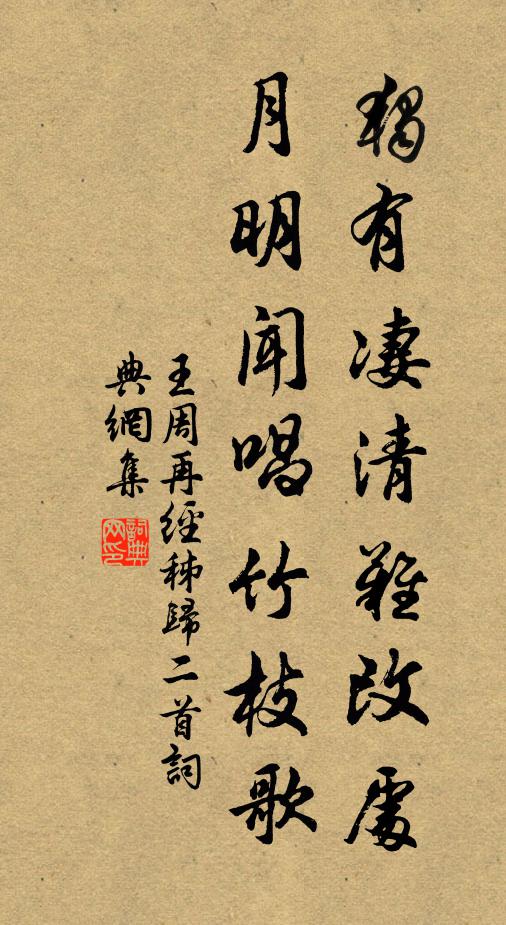 獨有凄清難改處
月明聞唱竹枝歌
王周再經秭歸二首詞
典網集
詞典网印